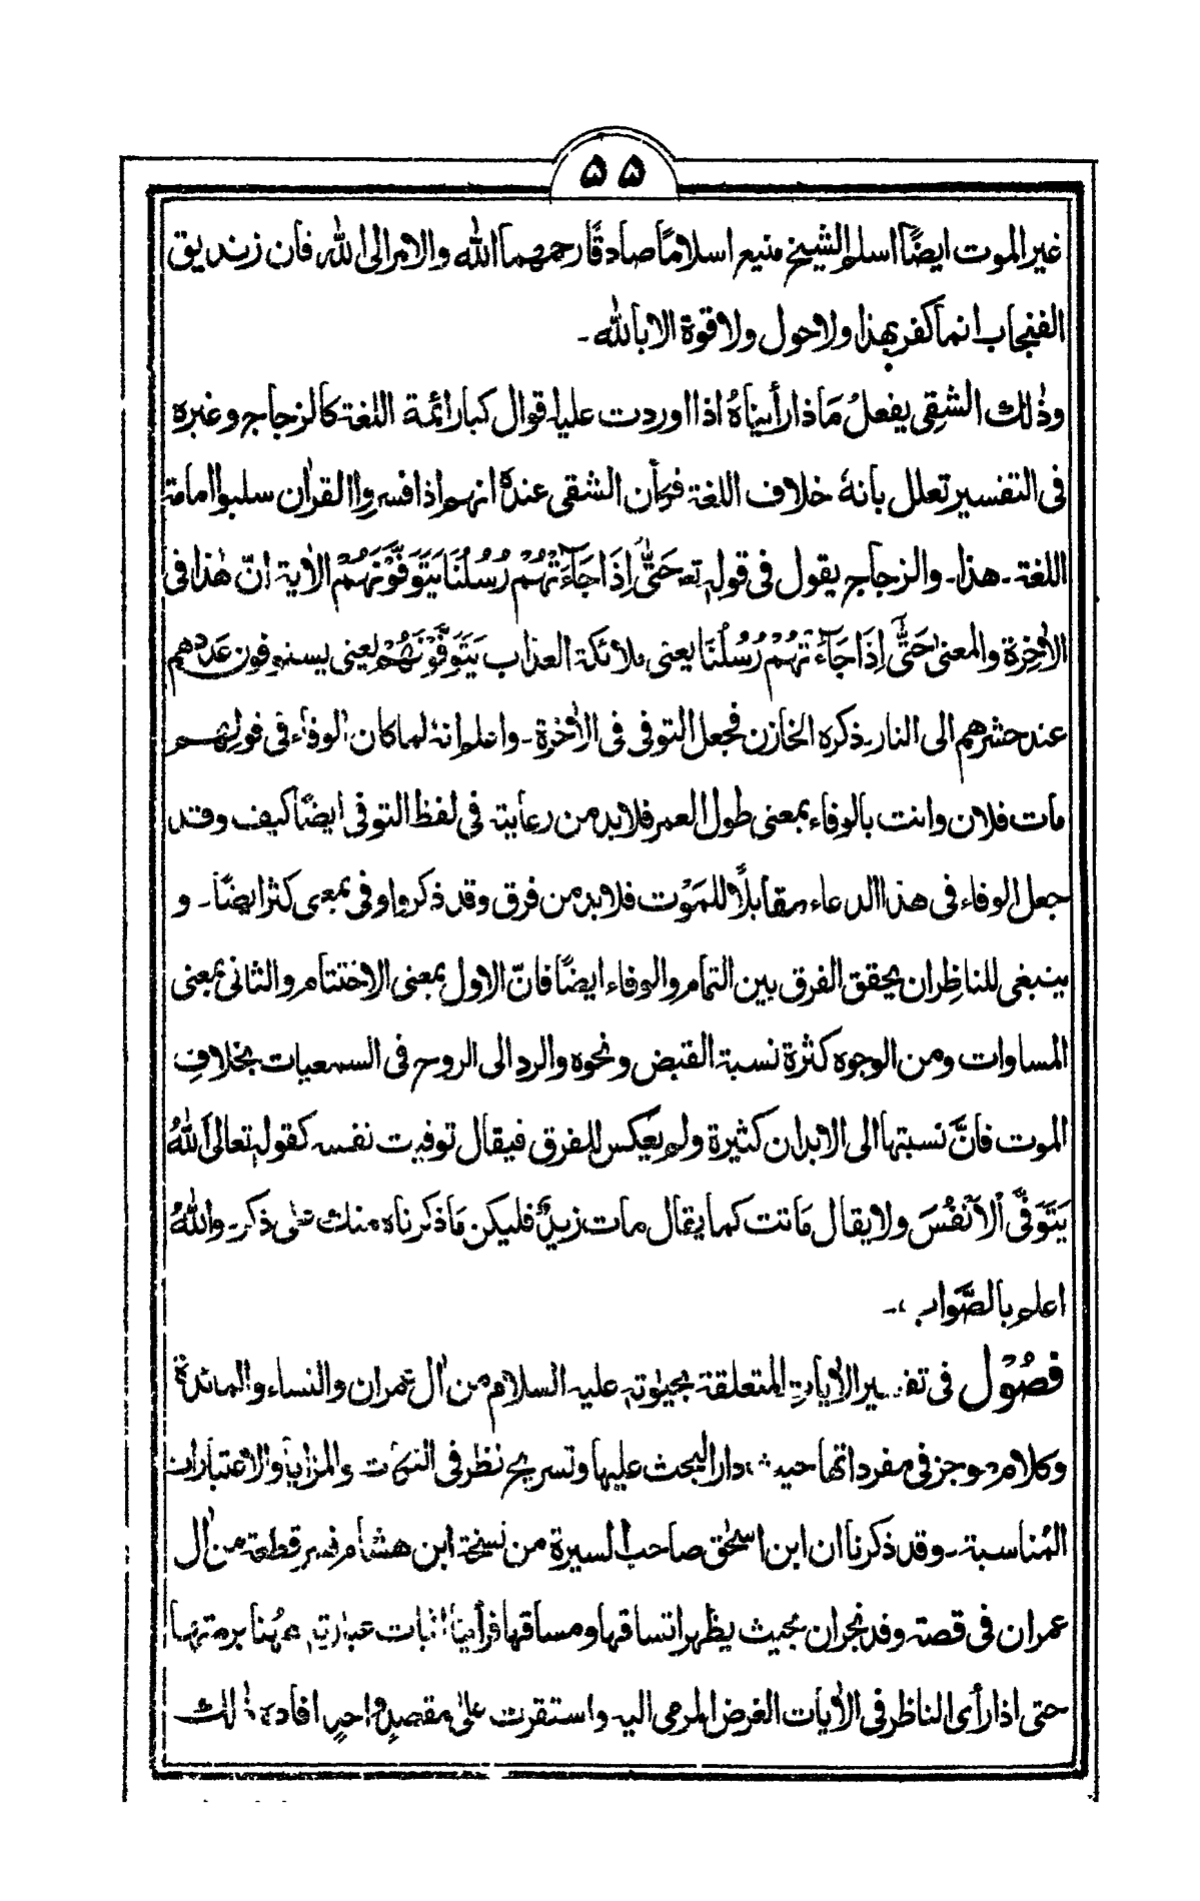 ۵۵
غير الموت ايضًا اسلم الشيخ منيع اسلامًا صادقًا رحمهما الله والامر الى الله، فان زنديق
الفنجاب انما كفر بهذا ولا حول ولا قوة الا بالله ـ
وذٰلك الشقى يفعلُ مَاذا رأيناهُ اذا اوردت عليه اقوال كبار ائمة اللغة كالزجاج وغيره
فى التفسير تعلل بانهٗ خلاف اللغة فكأن الشقى عندهٗ انهم اذا فسروا القراٰن سلبوا امامة
اللغة ـ هذا ـ والزجاج يقول فى قولهٖ تعـ حَتّٰى اِذَا جَآءَتْهُمْ رُسُلُنَا يَتَوَفَّوْنَهُمْ الاٰية انّ هٰذا فى
الاٰخِرة والمعنىٰ حَتّٰى اِذَا جَآءَتْهُمْ رُسُلُنَا يعنى ملائكة العذاب يَتَوَفَّوْنَهُمْ يعنى يستوفون عَددهم
عند حشرهم الى النار ـ ذكره الخازن فجعل التوفى فى الاٰخرة ـ واعلم انهٗ لما كان الوفاء فى قولهم
مات فلان وانت بالوفاء بمعنى طول العمر فلابد من رعايته فى لفظ التوفى ايضًا كيف وقد
جعل الوفاء فى هذا الدعاء مقابلًا للمَوْت فلابد من فرق وقد ذكروا وفى بمعنى كثر ايضًا ـ و
ينبغى للناظِر ان يحقق الفرق بين التمام والوفاء ايضًا فانّ الاول بمعنى الاختتام والثانى بمعنى
المساوات ومن الوجوه كثرة نسبة القبض ونحوه والرد الى الروح فى السمعيات بخلافِ
الموت فانَّ نسبتها الى الابدان كثيرة ولم يعكس للفرق فيقال توفيت نفسه كقولهٖ تعالى اَللّٰهُ
يَتَوَفَّى الْاَنْفُسَ ولا يقال مَاتت كما يقال مات زيدٌ فليكن مَا ذكرناه منك علىٰ ذكر ـ واللّٰهُ
اعلم بالصَّواب ،ـ
فصُوْل فى تفسير الاٰياتِ المتعلقة بحيٰوتهٖ عليه السلام من اٰل عمران والنساء والمائدة
وكلام موجز فى مفرداتها حيث دار البحث عليها وتسريح نظر فى النكات والمزايا والاعتبارات
المُناسبة ـ وقد ذكرنا ان ابن اسحٰق صاحب السيرة من نسخة ابن هشام فسر قطعة من اٰل
عمران فى قصة وفد نجران بحيث يظهر اتساقها ومساقها فرأينا اثبات عبارتهٖ هٰهُنا برمتها
حتى اذا رأى الناظر فى الاٰيات الغرض المرمى اليه واستقرت علىٰ مقصدٍ واحدٍ افاده ذٰلك